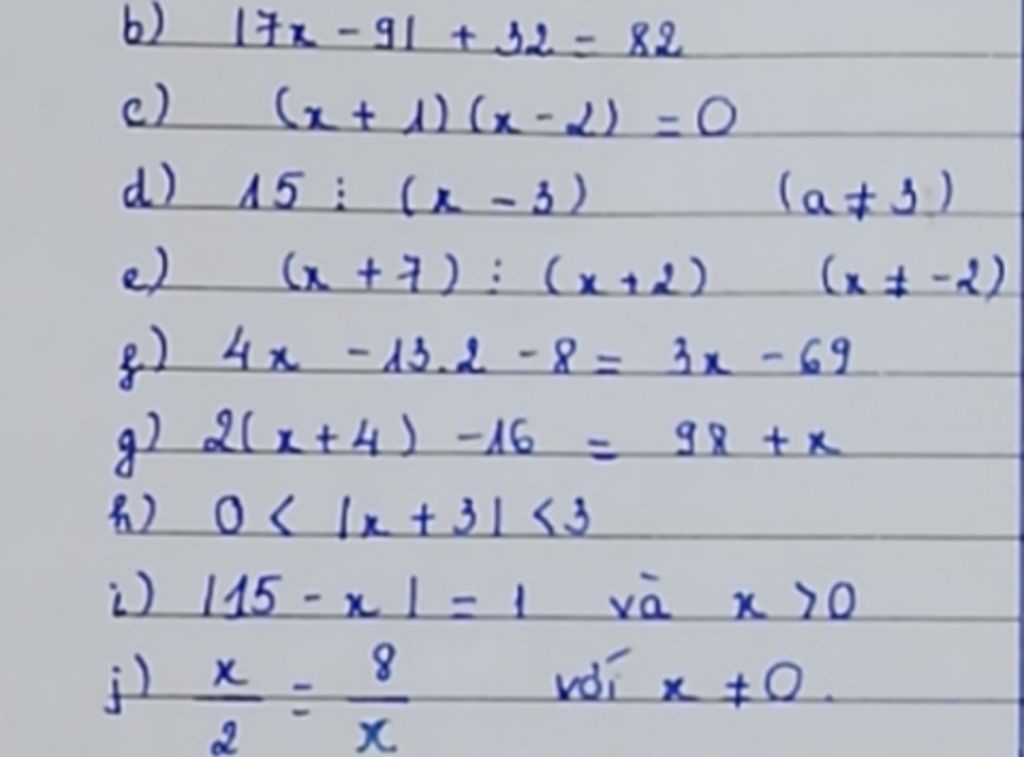 b) |7x - 9| + 32 = 82
c) (x + 1)(x - 2) = 0
d) 15 ⋮ (x - 3) (a ≠ 3)
e) (x + 7) ⋮ (x + 2) (x ≠ -2)
f) 4x - 13.2 - 8 = 3x - 69
g) 2(x + 4) - 16 = 98 + x
h) 0 < |x + 3| < 3
i) |15 - x| = 1 và x > 0
j) x/2 = 8/x với x ≠ 0.